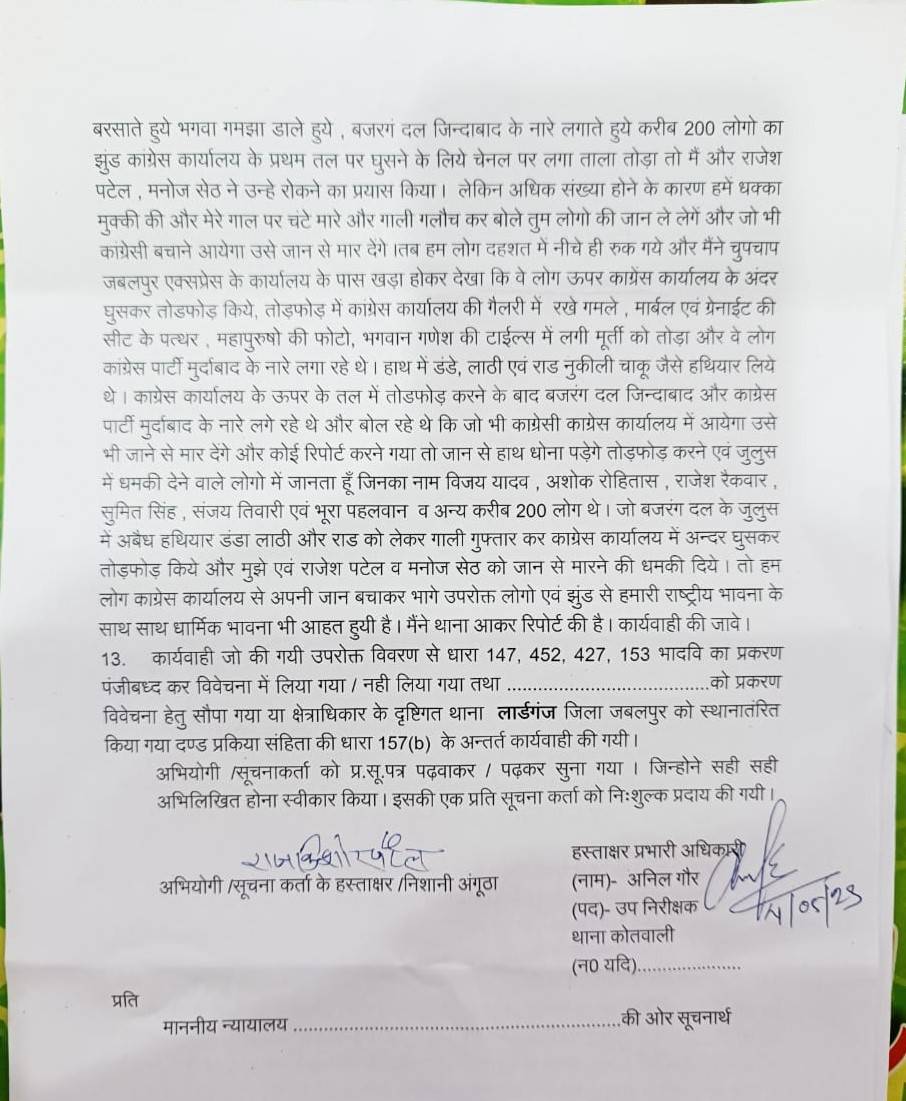 बरसाते हुये भगवा गमझा डाले हुये , बजरगं दल जिन्दाबाद के नारे लगाते हुये करीब 200 लोगो का
झुंड कांग्रेस कार्यालय के प्रथम तल पर घुसने के लिये चेनल पर लगा ताला तोड़ा तो मैं और राजेश
पटेल , मनोज सेठ ने उन्हे रोकने का प्रयास किया। लेकिन अधिक संख्या होने के कारण हमें धक्का
मुक्की की और मेरे गाल पर चंटे मारे और गाली गलौच कर बोले तुम लोगो की जान ले लेगें और जो भी
कांग्रेसी बचाने आयेगा उसे जान से मार देंगे ।तब हम लोग दहशत में नीचे ही रुक गये और मैंने चुपचाप
जबलपुर एक्सप्रेस के कार्यालय के पास खड़ा होकर देखा कि वे लोग ऊपर काग्रेंस कार्यालय के अंदर
घुसकर तोडफोड़ किये, तोड़फोड़ में कांग्रेस कार्यालय की गैलरी में रखे गमले , मार्बल एवं ग्रेनाईट की
सीट के पत्थर , महापुरुषो की फोटो, भगवान गणेश की टाईल्स में लगी मूर्ती को तोड़ा और वे लोग
कांग्रेस पार्टी मुर्दाबाद के नारे लगा रहे थे। हाथ में डंडे, लाठी एवं राड नुकीली चाकू जैसे हथियार लिये
थे। काग्रेस कार्यालय के ऊपर के तल में तोडफोड़ करने के बाद बजरंग दल जिन्दाबाद और काग्रेस
पार्टी मुर्दाबाद के नारे लगे रहे थे और बोल रहे थे कि जो भी काग्रेसी काग्रेस कार्यालय में आयेगा उसे
भी जाने से मार देंगे और कोई रिपोर्ट करने गया तो जान से हाथ धोना पड़ेगे तोड़फोड़ करने एवं जुलुस
में धमकी देने वाले लोगो में जानता हूँ जिनका नाम विजय यादव , अशोक रोहितास , राजेश रैकवार ,
सुमित सिंह , संजय तिवारी एवं भूरा पहलवान व अन्य करीब 200 लोग थे। जो बजरंग दल के जुलुस
में अबैध हथियार डंडा लाठी और राड को लेकर गाली गुफ्तार कर काग्रेस कार्यालय में अन्दर घुसकर
तोड़फोड़ किये और मुझे एवं राजेश पटेल व मनोज सेठ को जान से मारने की धमकी दिये। तो हम
लोग काग्रेस कार्यालय से अपनी जान बचाकर भागे उपरोक्त लोगो एवं झुंड से हमारी राष्ट्रीय भावना के
साथ साथ धार्मिक भावना भी आहत हुयी है। मैंने थाना आकर रिपोर्ट की है। कार्यवाही की जावे।
13. कार्यवाही जो की गयी उपरोक्त विवरण से धारा 147, 452, 427, 153 भादवि का प्रकरण
पंजीबध्द कर विवेचना में लिया गया / नही लिया गया तथा .......................................को प्रकरण
विवेचना हेतु सौपा गया या क्षेत्राधिकार के दृष्टिगत थाना लार्डगंज जिला जबलपुर को स्थानातंरित
किया गया दण्ड प्रकिया संहिता की धारा 157(b) के अन्तर्त कार्यवाही की गयी।
अभियोगी /सूचनाकर्ता को प्र.सू.पत्र पढ़वाकर / पढ़कर सुना गया । जिन्होने सही सही
अभिलिखित होना स्वीकार किया। इसकी एक प्रति सूचना कर्ता को निःशुल्क प्रदाय की गयी।
राजकिशोर पटेल
अभियोगी /सूचना कर्ता के हस्ताक्षर /निशानी अंगूठा
हस्ताक्षर प्रभारी अधिकारी
(नाम)- अनिल गौर
(पद)- उप निरीक्षक
थाना कोतवाली
(न0 यदि)....................
प्रति
माननीय न्यायालय ...............................................................की ओर सूचनार्थ